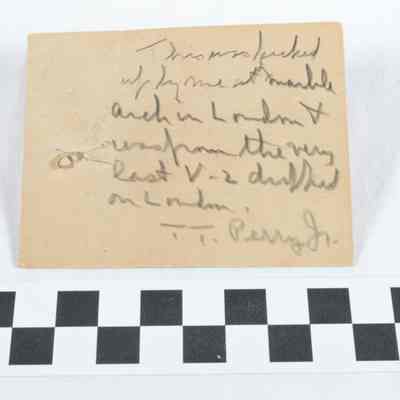 This was picked
up by me at marble
arch in London &
was from the very
last V-2 dropped
on London.
T.T. Perry Jr.